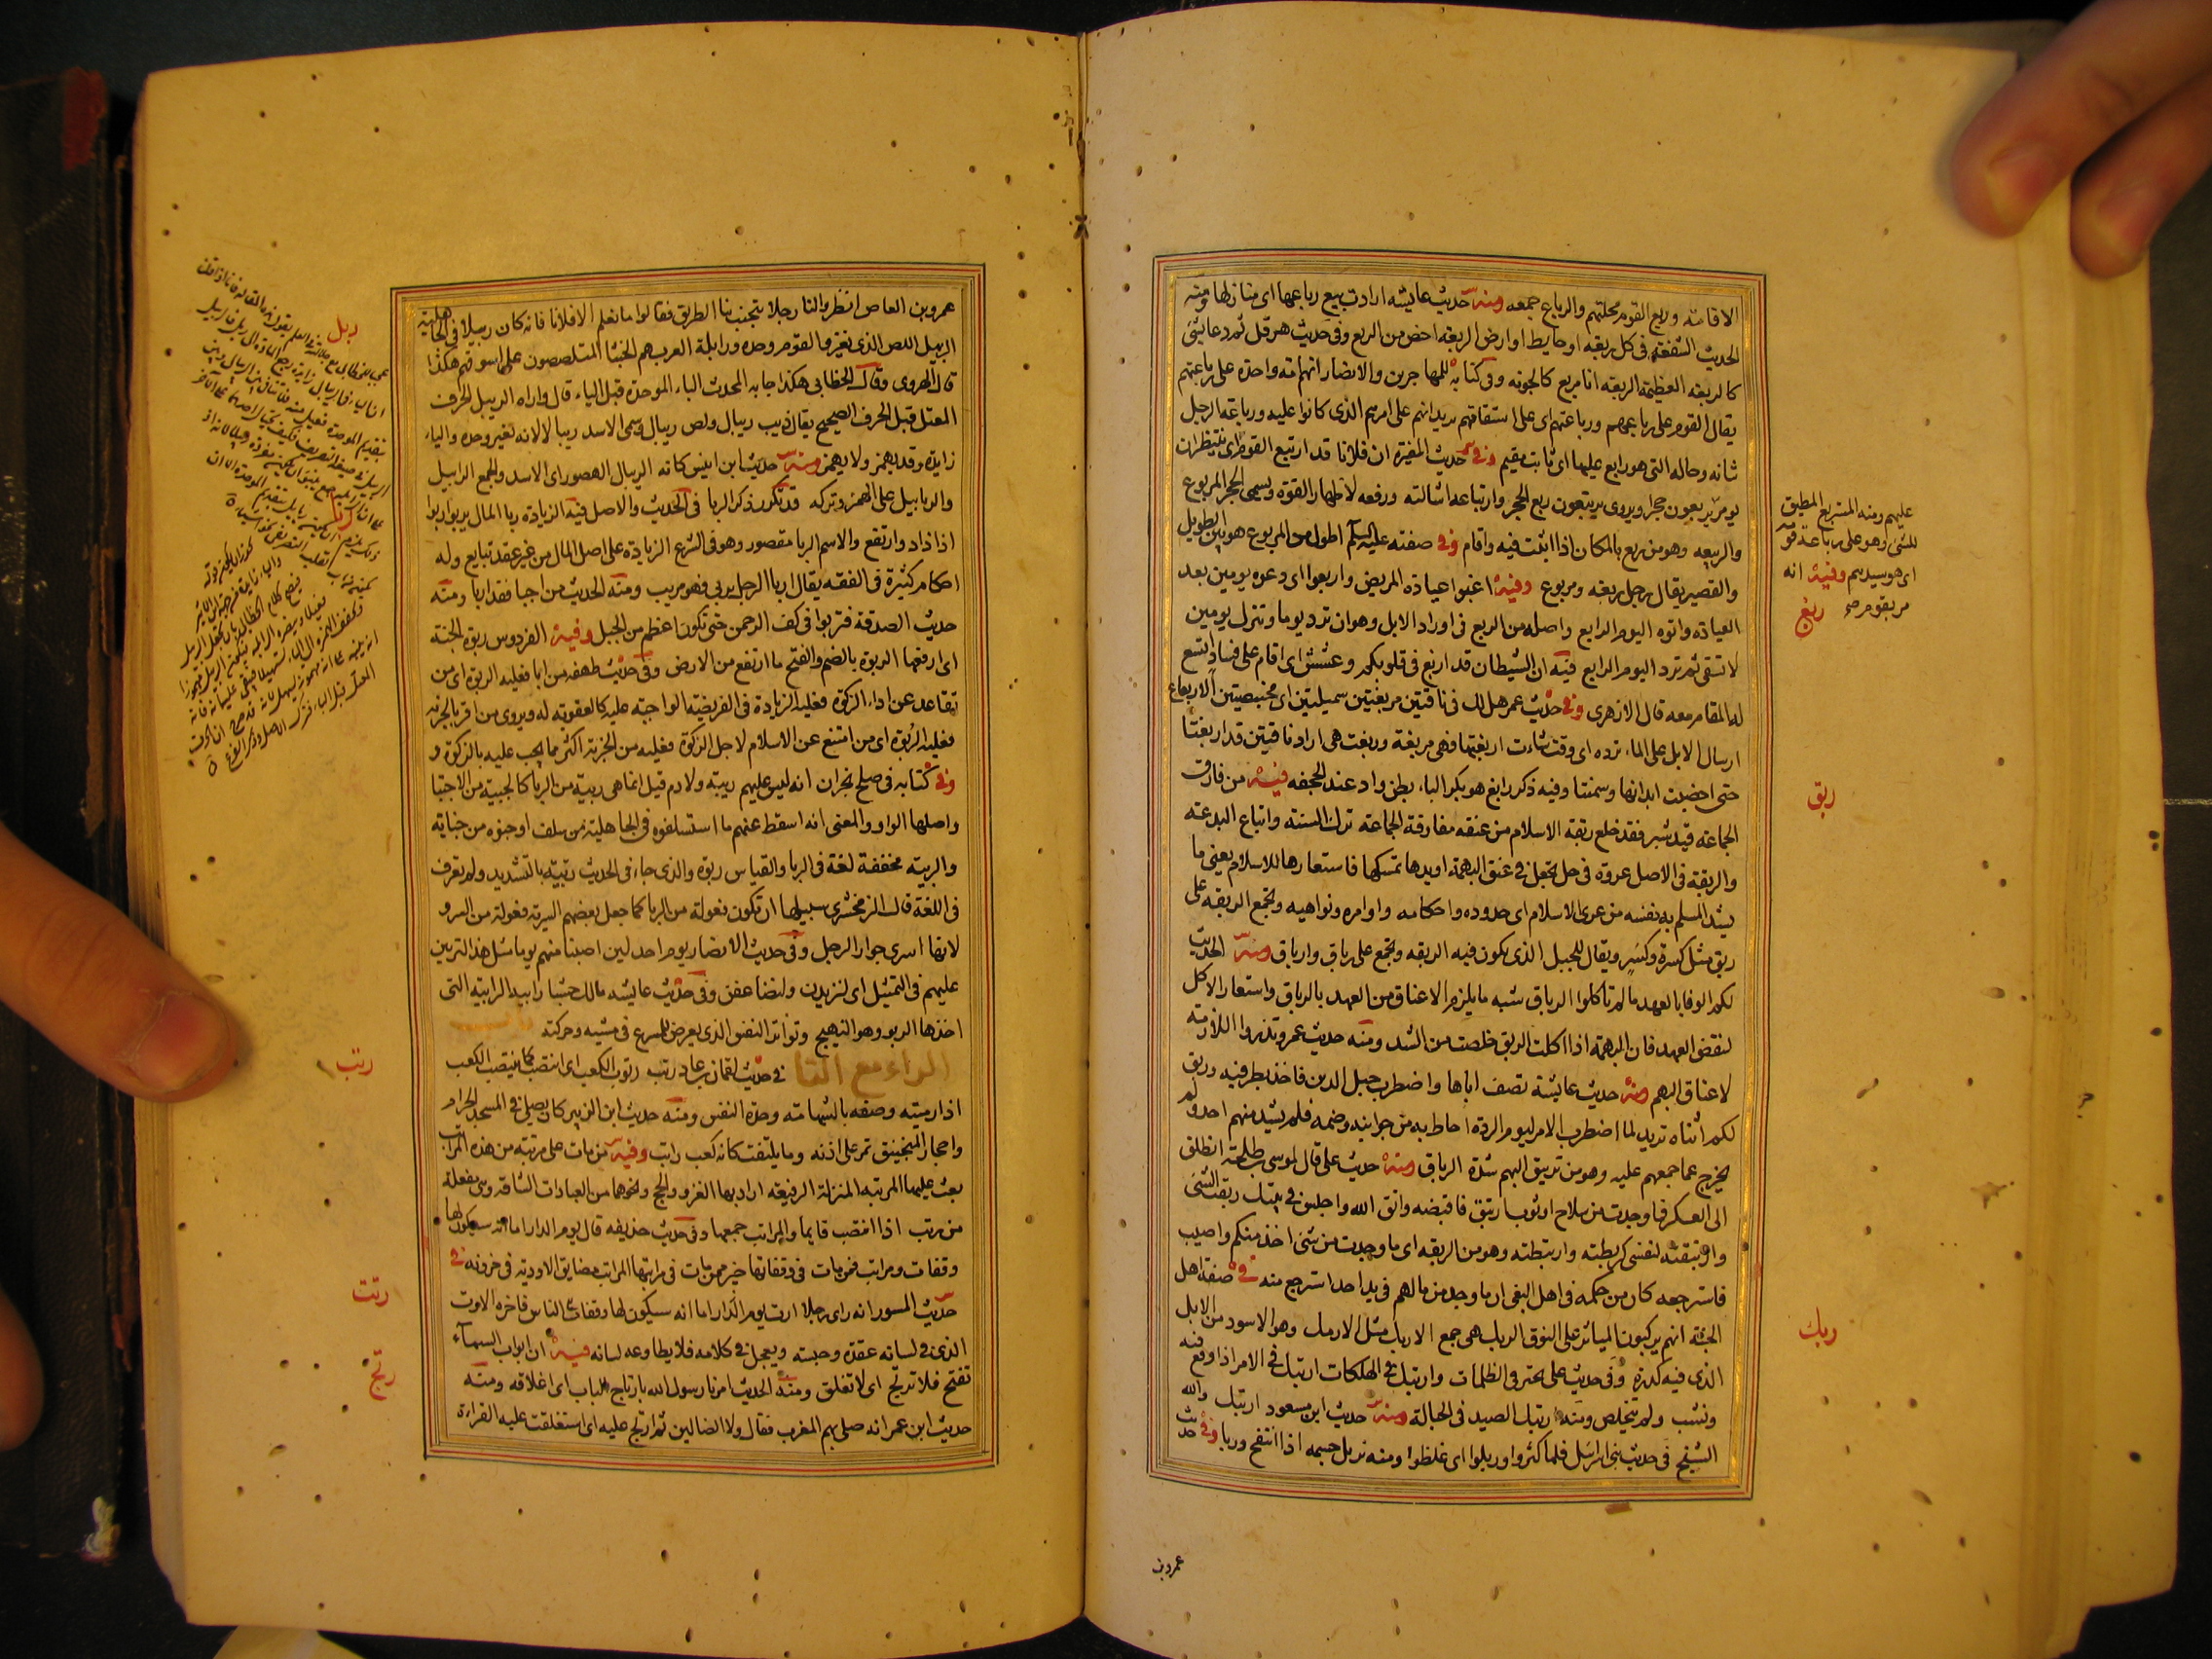 الاقامة وربع القوم محلتهم والرباع جمعه ومنه حديث عايشه ارادت بيع رباعها اى منازلها ومنه
الحديث الشفعة فى كل ربعه او حايط او ارض الربعه اخص من الربع وفى حديث هرقل ثم دعا بشئ
كالربعه العظيمة الربعه انا مربع كالجونه وفى كتابه للمهاجرين والانصار انهم امة واحدة على رباعتهم
يقال القوم على رباعتهم ورباعتهم اى على استقامتهم يريد انهم على امرهم الذى كانوا عليه ورباعة الرجل
شانه وحاله التى هو رابع عليها اى ثابت مقيم وفى حديث المغيرة ان فلانا قد ارتبع امر القوم اى ينتظر ان
يومر يربعون حجرا ويروى يرتبعون ربع الحجر وارتباعه اشالته ورفعه لاظهار القوة ويسمى الحجر المربوع
والربيعه وهو من ربع بالمكان اذا ثبت فيه واقام وفى صفته عليه السلم اطول من المربوع هو بين الطويل
والقصير يقال رجل ربعه ومربوع وفيه اغبوا عيادة المريض واربعوا اى دعوه يومين بعد
العيادة واتوه اليوم الرابع واصله من الربع فى اوراد الابل وهو ان ترد يوما وتترك يومين
لا تسقى ثم ترد اليوم الرابع فيه ان الشيطان قد اربغ فى قلوبكم وعشش اى اقام على فساد اتسع
له المقام معه قال الازهرى وفى حديث عمر هل لك فى ناقتين مربغتين سمينتين اى مخصبتين الارباغ
ارسال الابل على الماء ترده اى وقت شاءت اربغتها فهى مربغة وربغت هى اراد ناقتين قد اربغتا
حتى اخصبت ابدانها وسمنتا وفيه ذكر رابغ هو بكسر الباء بطن واد عند الجحفه فيه من فارق
الجماعة قيد شبر فقد خلع ربقة الاسلام من عنقه مفارقة الجماعة ترك السنة واتباع البدعة
والربقة فى الاصل عروة فى حبل تجعل فى عنق البهيمة او يدها تمسكها فاستعارها للاسلام يعنى ما
يشد المسلم به نفسه من عرى الاسلام اى حدوده واحكامه واوامره ونواهيه وتجمع الربقة على
ربق مثل كسرة وكسر ويقال للحبل الذى تكون فيه الربقه ربق وتجمع على رباق وارباق ومنه الحديث
لكم الوفا بالعهد ما لم تاكلوا الرباق شبه ما يلزم الاعناق من العهد بالرباق واستعار الاكل
لنقض العهد فان البهيمة اذا اكلت الربق خلصت من الشد ومنه حديث عمر وتذروا ارباقها
لاعناق البهم ومنه حديث عايشة تصف اباها واضطرب حبل الدين فاخذ بطرفيه وربق
لكم اثناه تريد لما اضطرب الامر يوم الردة احاط به من جوانبه وضمه فلم يشد منهم احد ولم
يخرج عما جمعهم عليه وهو من تربيق البهم شدة الرباق ومنه حديث على قال لموسى بن طلحة انطلق
الى العسكر فما وجدت من سلاح او ثوب ارتبق فاقبضه واتق الله واجلس فى بيتك ربقت الشئ
وارتبقته لنفسى كربطته وارتبطته وهو من الربقه اى ما وجدت من شئ اخذ منكم واصيب
فاسترجعه كان من حكمه فى اهل البغى ان ما وجد من مالهم فى يد احد استرجع منه فى صفة اهل
الجنة انهم يركبون المياثر على النوق الربك هى جمع الاربك مثل الارمك وهو الاسود من الابل
الذى فيه كدرة وفى حديث على تحير فى الظلمات وارتبك فى الهلكات ارتبك فى الامر اذا وقع فيه
ونشب ولم يتخلص ومنه ارتبك الصيد فى الحبالة ومنه حديث ابن مسعود ارتبك والله
الشيخ فى حديث بنى اسرائيل فلما كثروا وربلوا اى غلظوا ومنه تربل جسمه اذا انتفخ وربا وفى حديث
عمرو بن
عليهم ومنه المستربع المطيق
للشئ وهو على رباعة قومه
اى هو سيدهم وفيه انه
مر بقوم
ربغ
ربق
ربك
عمرو بن العاص انظروا لنا رجلا يتجنب بنا الطريق فقالوا ما نعلم الا فلانا فانه كان ربيلا فى الجاهلية
الربيل اللص الذى يغزو القوم وحده ورابلة العرب هم الخبثا المتلصصون على اسوقهم هكذا
قال الهروى وقال الخطابى هكذا جا به المحدث الباء الموحدة قبل الياء قال واراه الريبل الحرف
المعتل قبل الحرف الصحيح يقال ذيب ريبال ولص ريبال وسمى الاسد ريبالا لانه يغير وحده والياء
زايدة وقد يهمز ولا يهمز ومنه حديث ابن انيس كانه الريبال الهصور اى الاسد والجمع الرابيل
والريابيل على الهمز وتركه قد تكرر ذكر الربا فى الحديث والاصل فيه الزيادة ربا المال يربو ربوا
اذا زاد وارتفع والاسم الربا مقصور وهو فى الشرع الزيادة على اصل المال من غير عقد تبايع وله
احكام كثيرة فى الفقه يقال اربا الرجل يربى فهو مرب ومنه الحديث من اجبا فقد اربا ومنه
حديث الصدقة فتربوا فى كف الرحمن حتى تكون اعظم من الجبل وفيه الفردوس ربوة الجنة
اى ارفعها الربوة بالضم والفتح ما ارتفع من الارض وفى حديث طهفه من ابا فعليه الربوة اى من
تقاعد عن اداء الزكوة فعليه الزيادة فى الفريضة الواجبة عليه كالعقوبة له ويروى من اقر بالجزية
فعليه الربوة اى من امتنع عن الاسلام لاجل الزكوة فعليه من الجزية اكثر ما يجب عليه بالزكوة و
وفى كتابه فى صلح نجران انه ليس عليهم ربية ولا دم قيل انما هى ربية من الربا كالحبية من الاحتبا
واصلها الواو والمعنى انه اسقط عنهم ما استسلفوه فى الجاهلية من سلف او جنوه من جناية
والربية مخففة لغة فى الربا والقياس ربوة والذى جاء فى الحديث ربية بالتشديد ولم تعرف
فى اللغة قال الزمخشرى سبيلها ان تكون فعولة من الربا كما جعل بعضهم السرية فعولة من السرو
لانها اسرى جوار الرجل وفى حديث الانصار يوم احد لين اصبنا منهم يوما مثل هذا لتربين
عليهم فى التمثيل اى لنزيدن ولنضاعفن وفى حديث عايشه مالك حشيا رابية الرابية التى
اخذها الربو وهو النهيج وتواتر النفس الذى يعرض للمسرع فى مشيه وحركته
الراء مع التا فى حديث لقمان بن عاد رتب رتوب الكعب اى انتصب كما ينتصب الكعب
اذا رميته وصفه بالشهامة وحدة النفس ومنه حديث ابن الزبير كان يصلى فى المسجد الحرام
واحجار المنجنيق تمر على اذنه وما يلتفت كانه كعب راتب وفيه من مات على مرتبة من هذه المراتب
بعث عليها المرتبه المنزلة الرفيعة اراد بها الغزو والحج ونحوهما من العبادات الشاقة وهى مفعلة
من رتب اذا انتصب قايما والمراتب جمعها وفى حديث حذيفه قال يوم الدار اما انه سيكون لها
وقفات ومراتب فمن مات فى وقفاتها خير ممن مات فى مراتبها المراتب مضايق الاودية فى حزونه فى
حديث المسور انه راى رجلا ارت يوم الناس فاخره الارت
الذى فى لسانه عقدة وحبسة ويعجل فى كلامه فلا يطاوعه لسانه فيه ان ابواب السماء
تفتح فلا ترتج اى لا تغلق ومنه الحديث امرنا رسول الله بارتاج الباب اى اغلاقه ومنه
حديث ابن عمر انه صلى بهم المغرب فقال ولا الضالين ثم ارتج عليه اى استغلقت عليه القراءة
ربل
ربا
رتب
رتت
رتج